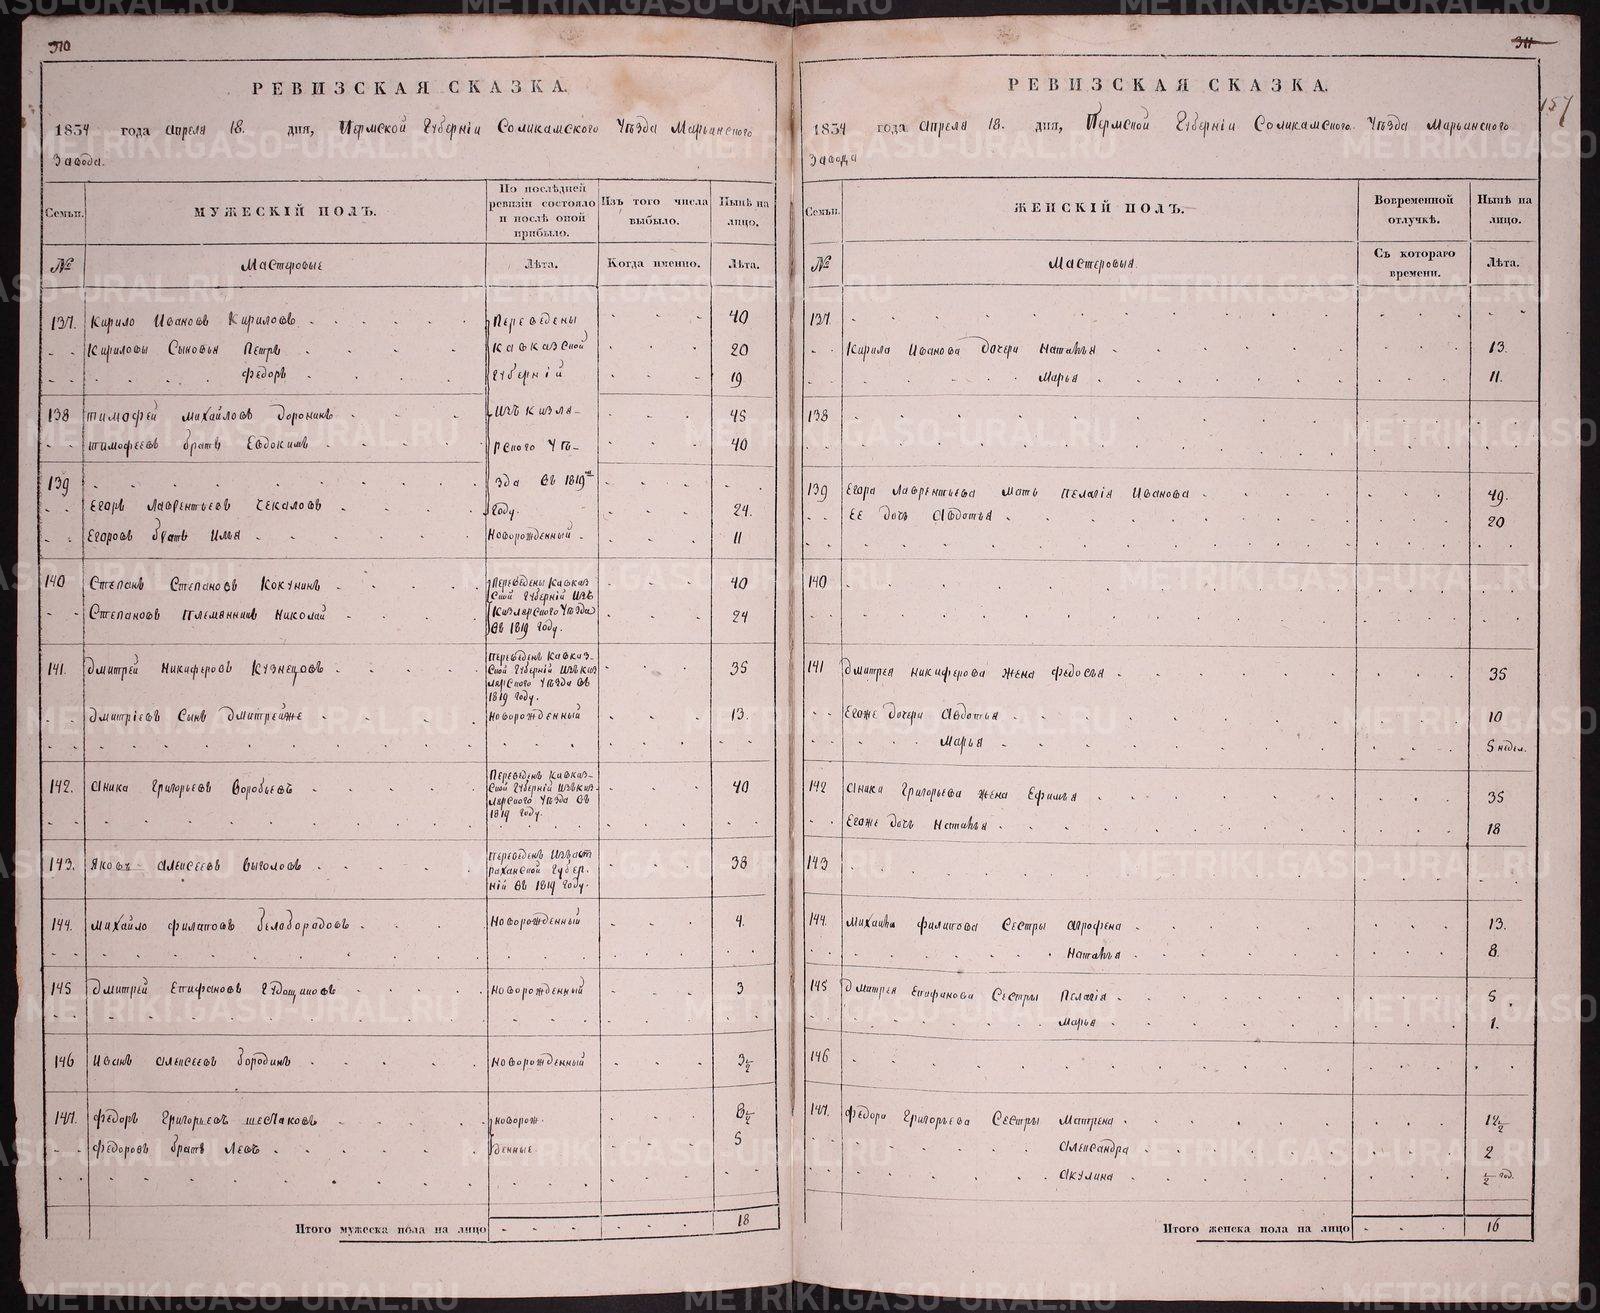 310
РЕВИЗСКАЯ СКАЗКА.
1834 года Апреля 18. дня, Пермской Губернiи Соликамского Уѣзда Марьинского
Завода.
Семьи. МУЖЕСКIЙ ПОЛЪ. По послѣдней ревизiи состояло и послѣ оной прибыло. Изъ того числа выбыло. Нынѣ на лицо.
№ Мастеровые Лѣта. Когда именно. Лѣта.
137. Кирило Ивановъ Кириловъ Переведены 40
Кириловы Сыновья Петръ Кавказской 20
Федоръ Губернiй 19
138 Тимофей Михайловъ Доронинъ Изъ Кизля- 45
Тимофеевъ братъ Евдокимъ рского Уѣ- 40
139 зда Въ 1819мъ
Егоръ Лаврентьевъ Чекаловъ Году. 24.
Егоровъ братъ Илья Новорожденный 11
140 Степанъ Степановъ Кокунинъ Переведены Кавказ 40
Ской Губернiй Изъ
Степановъ Племянникъ Николай Кизлярского Уѣзда 24
Въ 1819 Году.
141. Дмитрей Никиферовъ Кузнецовъ Переведенъ Кавказ- 35
Ской Губернiй Изъ Киз
лярского Уѣзда Въ
1819 Году.
Дмитрiевъ Сынъ Дмитрейже Новорожденный 13.
142. Аника Григорьевъ Воробьевъ Переведенъ Кавказ- 40
Ской Губернiй Изъ Киз-
лярского Уѣзда Въ
1819 Году.
143. Яковъ Алексеевъ Выголовъ Переведенъ Изъ Аст 38
раханской Губер.
нiй Въ 1819 Году.
144. Михайло Филаповъ Белобородовъ Новорожденный 4.
145 Дмитрей Епифановъ Новорожденный 3
146 Иванъ Алексеевъ Бородинъ Новорожденный 3½
147. Федоръ Григорьевъ Шестаковъ Новорож- 6½
Федоровъ братъ Левъ денные 5
Итого мужеска пола на лицо 18
311
157
РЕВИЗСКАЯ СКАЗКА.
1834 года Апреля 18. дня, Пермской Губернiи Соликамского Уѣзда Марьинского
Завода
Семьи. ЖЕНСКIЙ ПОЛЪ. Вовременной отлучкѣ. Нынѣ на лицо.
№ Мастеровыя. Съ котораго времени. Лѣта.
137.
Кирила Иванова Дочери Наталья 13.
Марья 11.
138
139 Егора Лаврентьева Мать Пелагiя Иванова 49.
Ее Дочь Авдотья 20
140
141 Дмитрея Никиферова Жена Федосья 35
Егоже Дочери Авдотья 10
Марья 5 недел.
142 Аники Григорьева Жена Ефимья 35
Егоже Дочь Наталья 18
143
144. Михаила Филипова Сестры Агрофена 13.
Наталья 8.
145 Дмитрея Епифанова Сестры Пелагiя 5
Марья 1.
146
147. Федора Григорьева Сестры Матрена 12½
Александра 2
Акулина ½ год.
Итого женска пола на лицо 16
METRIKI.GASO-URAL.RU